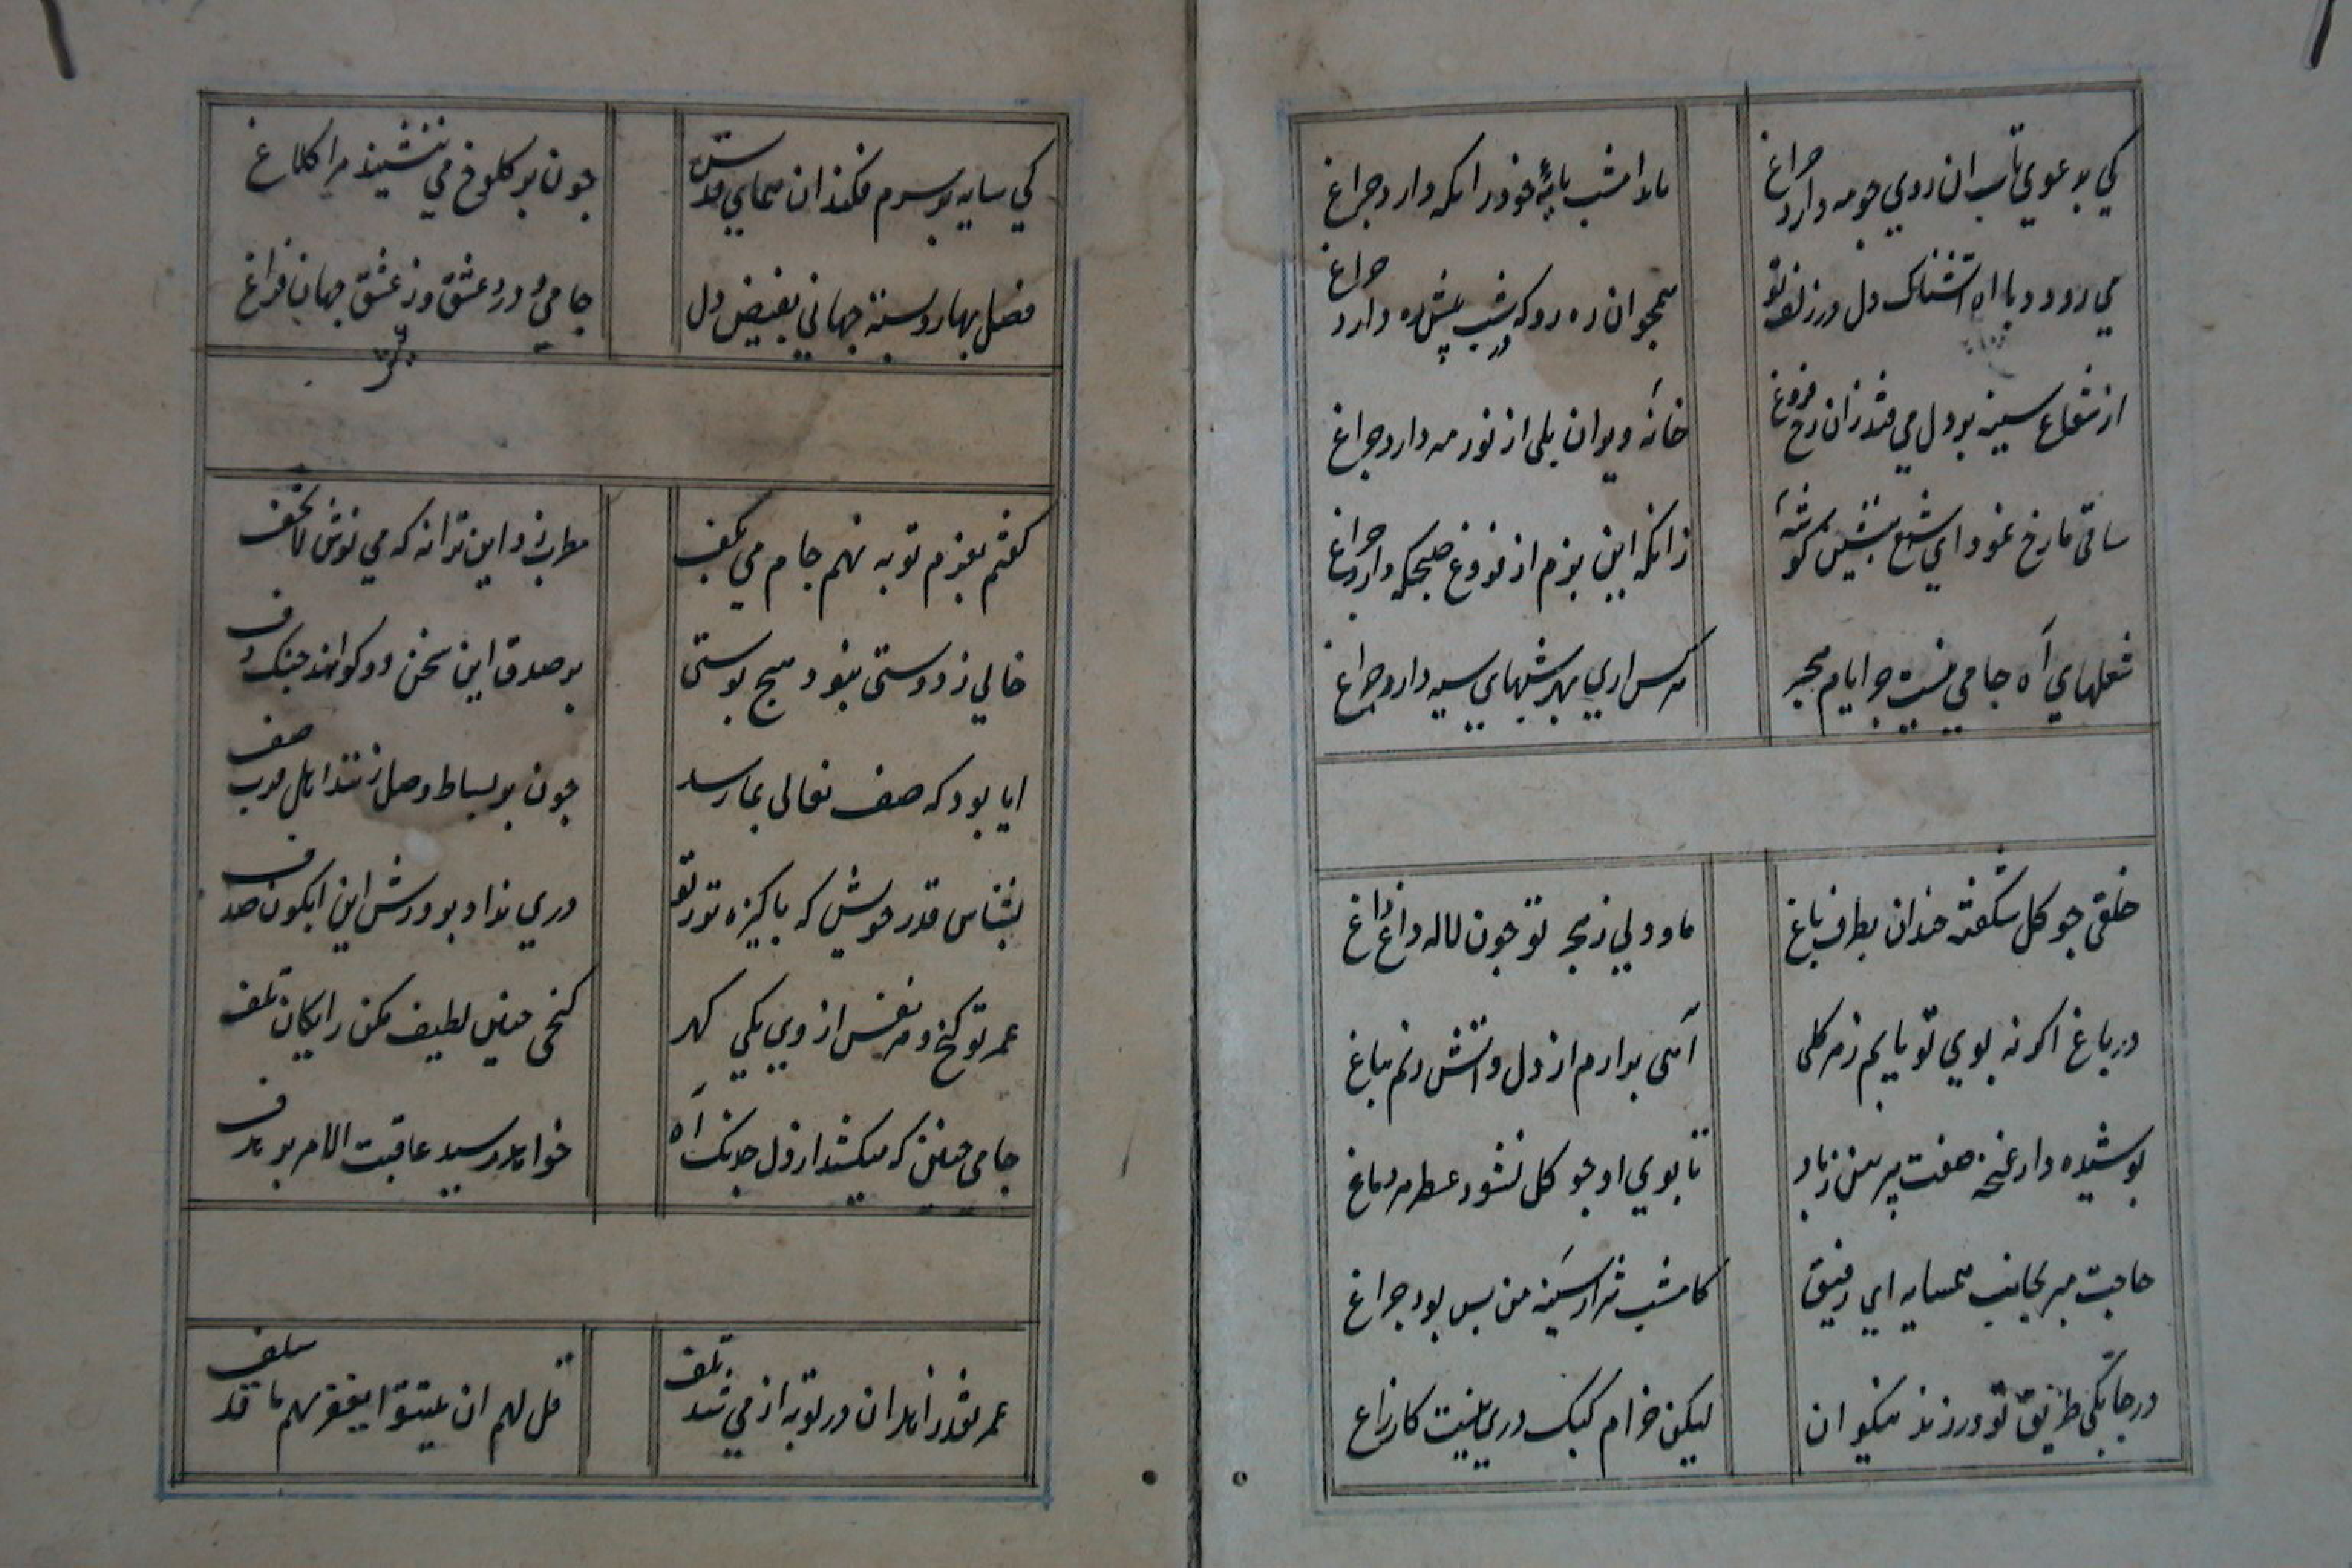 كي بدعوي تاب ان روي جو مه دارد جراغ
باد امشب پايهٔ خود را نكه دارد جراغ
مي رود دل با اه اتشناك در زلف تو
همجو ان ره رو كه در شب پيش ره دارد جراغ
از شعاع سينه بر دل مي فتد زان رخ فروغ
خانه ويران بلي از نور مه دارد جراغ
ساقي ما رخ نمود اي شمع بنشين كوشهٔ
زانكه اين بزم از فروغ صبحكه دارد جراغ
شعلهاي آه جامي نيست جز ايام هجر
هر كس اري بهر شبهاي سيه دارد جراغ
خلقي جو كل شكفته خندان بطرف باغ
ما و دلي ز هجر تو جون لاله داغ داغ
در باغ اكر نه بوي تو يابم ز هر كلي
آهي برارم از دل و اتش زنم بباغ
بوشيده دار غنجه صفت پيرهن ز باد
تا بوي او جو كل نشود عطر هر دماغ
حاجت مبر بجانب همسايه اي رفيق
كامشب شرار سينه من بس بود جراغ
در جابكي طريق تو ورزند نيكوان
ليكن خرام كبك دري نيست كار زاغ
كي سايه بر سرم فكند ان هماي قدس
جون بر كلوخ مي ننشيند مرا كلاغ
فصل بهار و بسته جهاني بفيض دل
جامي و درد عشق وز عشق جهان فراغ
كفتم بعزم توبه نهم جام مي بكف
مطرب زد اين ترانه كه مي نوش لا تخف
خالي ز دوستي نبود هيج بوستي
بر صدق اين سخن دو كواهند جنك و دف
ايا بود كه صف نعالي بما رسد
جون بر بساط وصل زنند اهل قرب صف
بشناس قدر خويش كه باكيزه تر ز تو
دري نداد برورش اين ابكون صدف
عمر تو كنج و هر نفس از وي يكي كهر
كنجي جنين لطيف مكن رايكان تلف
جامي جنين كه ميكشد از دل خدنك آه
خواهد رسيد عاقبت الامر بر هدف
عمر تو زاهدان در توبه از مي شد تلف
قل لهم ان ينتهوا يغفر لهم ما قد سلف